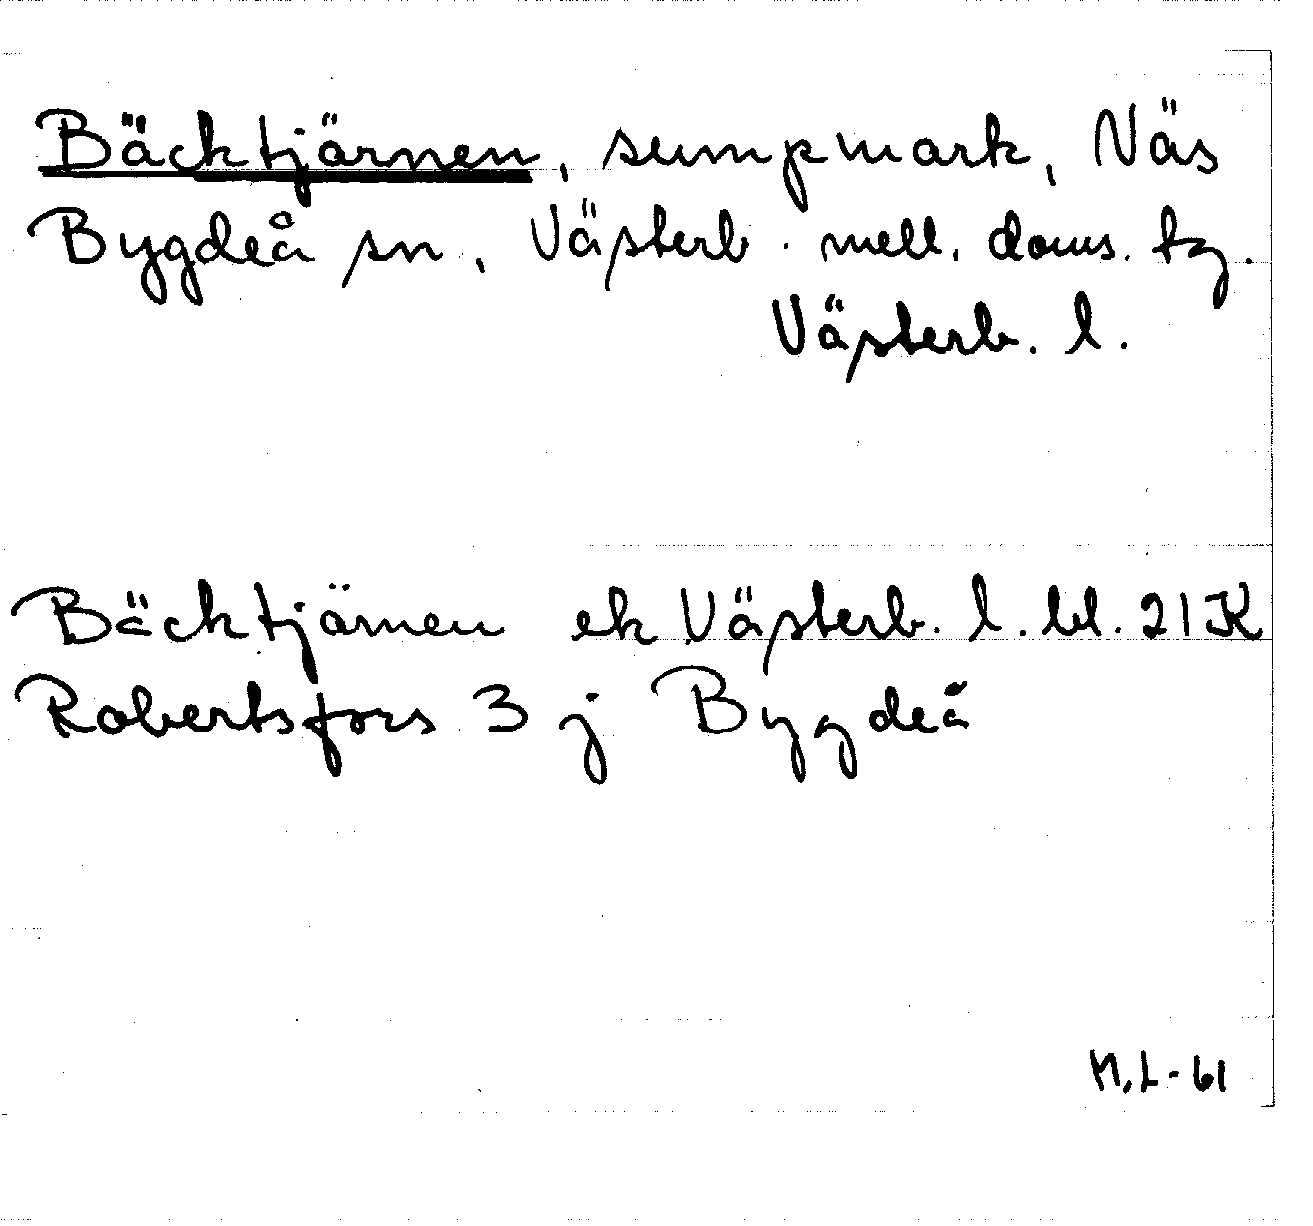 Bäcktjärnen, sumpmark, Näs
Bygdeå sn, Västerb. mell. doms. tg.
Västerb. l.
Bäcktjärnen ek Västerb. l. bl. 21K
Robertsfors 3 j Bygdeå
M,L-61